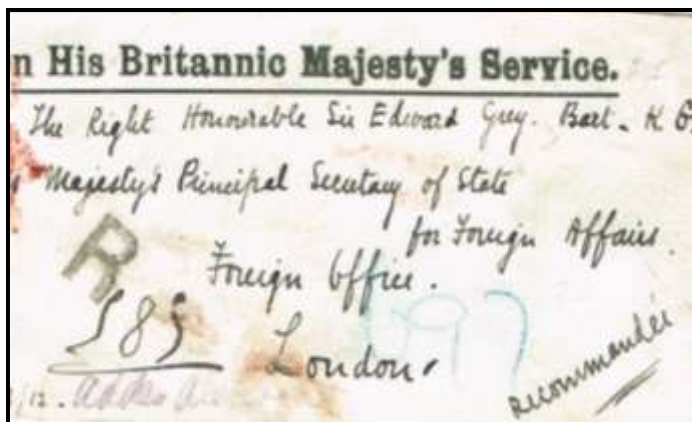 n His Britannic Majesty's Service.
The Right Honourable Sir Edward Grey. Bart. K G
s Majesty's Principal Secretary of State
for Foreign Affairs.
Foreign Office.
R
585
London.
97
recommandée
/12.